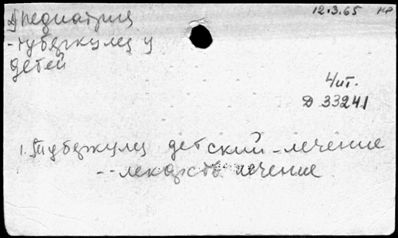 Педиатрия 12.3.65 кр
- туберкулез у
детей
Чит.
Д 33241
1. Туберкулез детский - лечение
-- лекарств. лечение